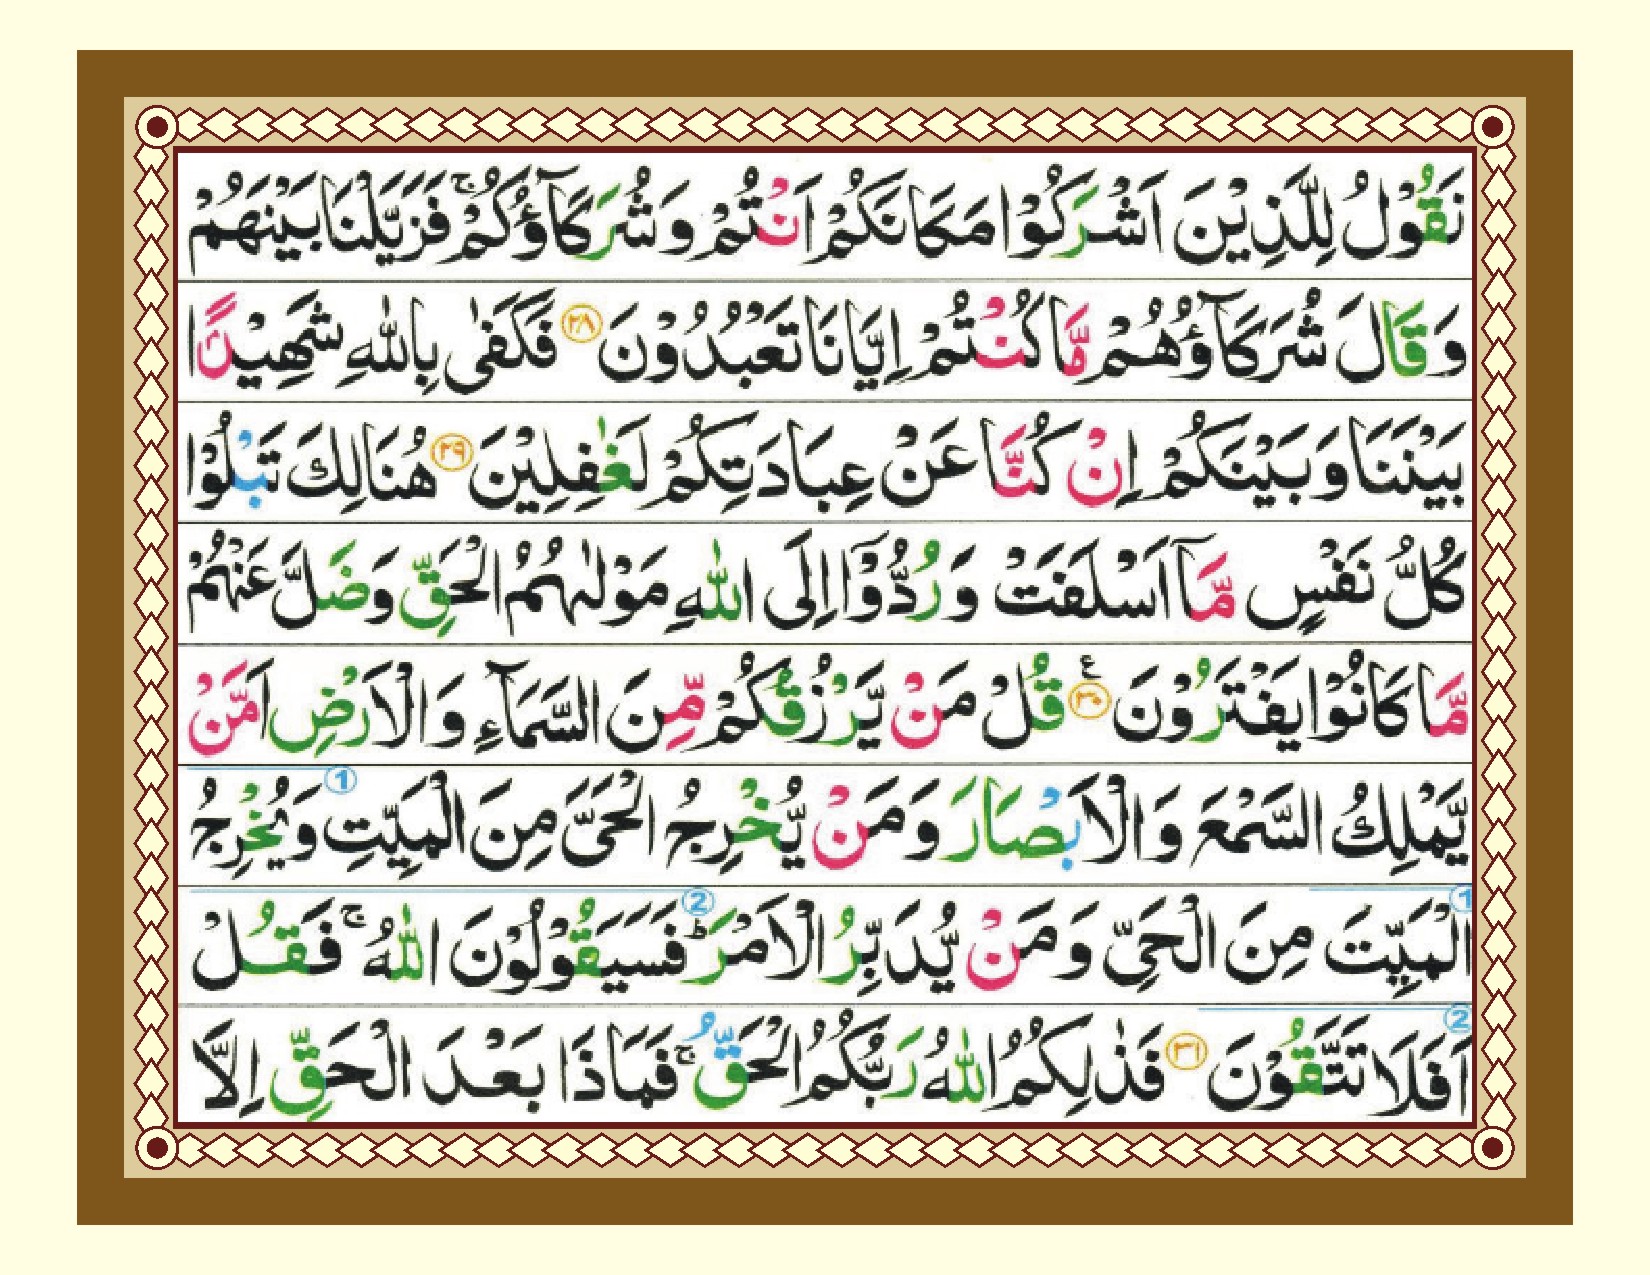 نَقُوْلُ لِلَّذِيْنَ اَشْرَكُوْا مَكَانَكُمْ اَنْتُمْ وَشُرَكَآؤُكُمْ ۚ فَزَيَّلْنَا بَيْنَهُمْ
وَقَالَ شُرَكَآؤُهُمْ مَّا كُنْتُمْ اِيَّانَا تَعْبُدُوْنَ ﴿۲۸﴾ فَكَفٰى بِاللّٰهِ شَهِيْدًۢا
بَيْنَنَا وَبَيْنَكُمْ اِنْ كُنَّا عَنْ عِبَادَتِكُمْ لَغٰفِلِيْنَ ﴿۲۹﴾ هُنَالِكَ تَبْلُوْا
كُلُّ نَفْسٍ مَّآ اَسْلَفَتْ وَرُدُّوْۤا اِلَى اللّٰهِ مَوْلٰىهُمُ الْحَقِّ وَضَلَّ عَنْهُمْ
مَّا كَانُوْا يَفْتَرُوْنَ ﴿۳۰﴾ ع قُلْ مَنْ يَّرْزُقُكُمْ مِّنَ السَّمَآءِ وَالْاَرْضِ اَمَّنْ
يَّمْلِكُ السَّمْعَ وَالْاَبْصَارَ وَمَنْ يُّخْرِجُ الْحَيَّ مِنَ الْمَيِّتِ وَيُخْرِجُ 1
الْمَيِّتَ مِنَ الْحَيِّ وَمَنْ يُّدَبِّرُ الْاَمْرَ ؕ فَسَيَقُوْلُوْنَ اللّٰهُ ۚ فَقُلْ 1 2
اَفَلَا تَتَّقُوْنَ ﴿۳۱﴾ فَذٰلِكُمُ اللّٰهُ رَبُّكُمُ الْحَقُّ ۚ فَمَاذَا بَعْدَ الْحَقِّ اِلَّا 2